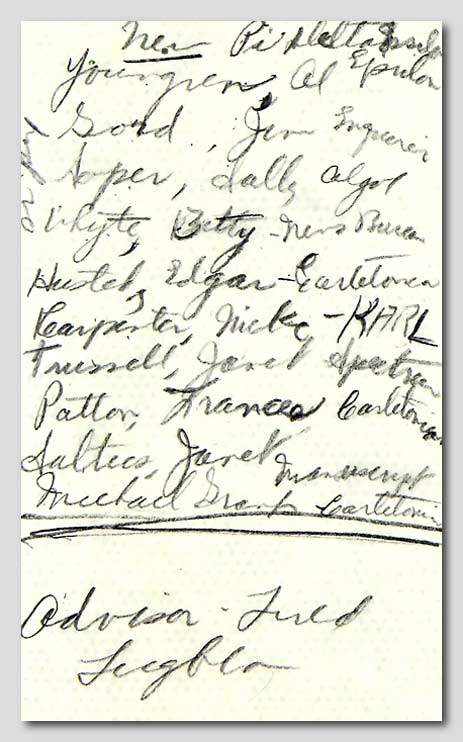 New Pi Delta Epsilon
Youngren, Al Epsilon
Gord, Jim Enquirer
Soper, Sally Algol
Whyte, Betty - News Bureau
Edgar - Carletonian
Carpenter, Nicke - KARL
Trussell, Janet Spectrum
Patton, Frances Carletonian
Janet Manuscript
Michael Carletonian
Advisor - Fred